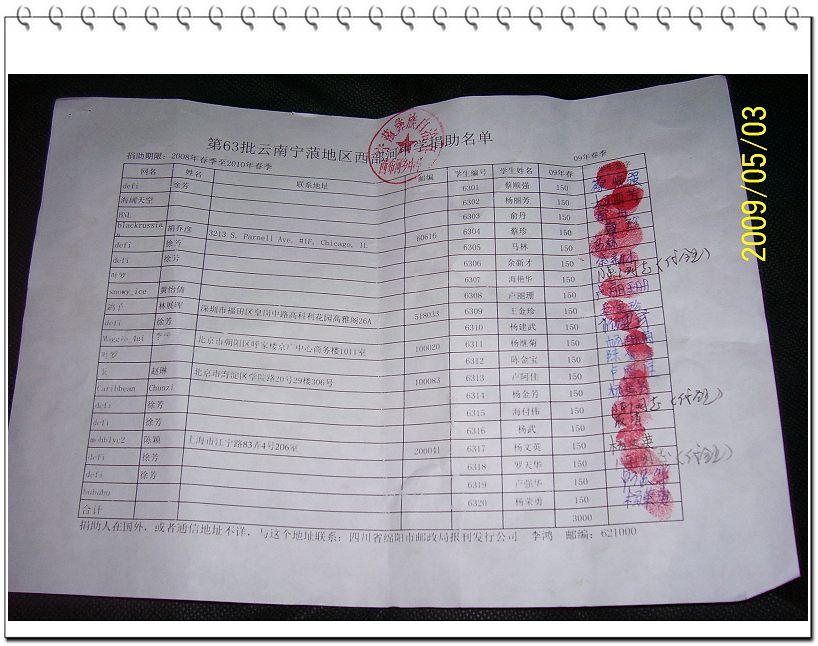 第63批云南宁蒗地区西部河中学捐助名单
捐助期限：2008年春季至2010年春季
09年春季
网名 姓名 联系地址 邮编 学生编号 学生姓名 09年春
defi 徐芳 6301 蔡顺强 150
海阔天空 6302 杨丽芳 150
HNL 6303 俞丹 150
blackrussian 胡乔彦 3213 S. Parnell Ave, #1F, Chicago, IL 60616 6304 蔡珍 150
defi 徐芳 6305 马林 150
defi 徐芳 6306 余新才 150
叶罗 6307 海艳华 150
snowy_ice 黄怡倩 6308 卢丽珊 150
鸽子 林展晖 深圳市福田区皇岗中路高科利花园高雅阁26A 518033 6309 王金珍 150
defi 徐芳 6310 杨建武 150
Maggie_Hui 北京市朝阳区呼家楼京广中心商务楼1011室 100020 6311 杨继菊 150
叶罗 6312 陈金宝 150
k 赵琳 北京市海淀区学院路20号29楼306号 100083 6313 卢阿佳 150
Caribbean Chunzi 6314 杨金芳 150
defi 徐芳 6315 海付伟 150
defi 徐芳 6316 杨武 150
mebblyc2 陈颖 上海市江宁路83弄4号206室 200041 6317 杨文英 150
defi 徐芳 6318 罗天华 150
defi 徐芳 6319 卢强华 150
hubuhu 6320 杨荣勇 150
合计 3000
捐助人在国外，或者通信地址不详，与这个地址联系：四川省绵阳市邮政局报刊发行公司 李鸿 邮编：621000
2009/05/03